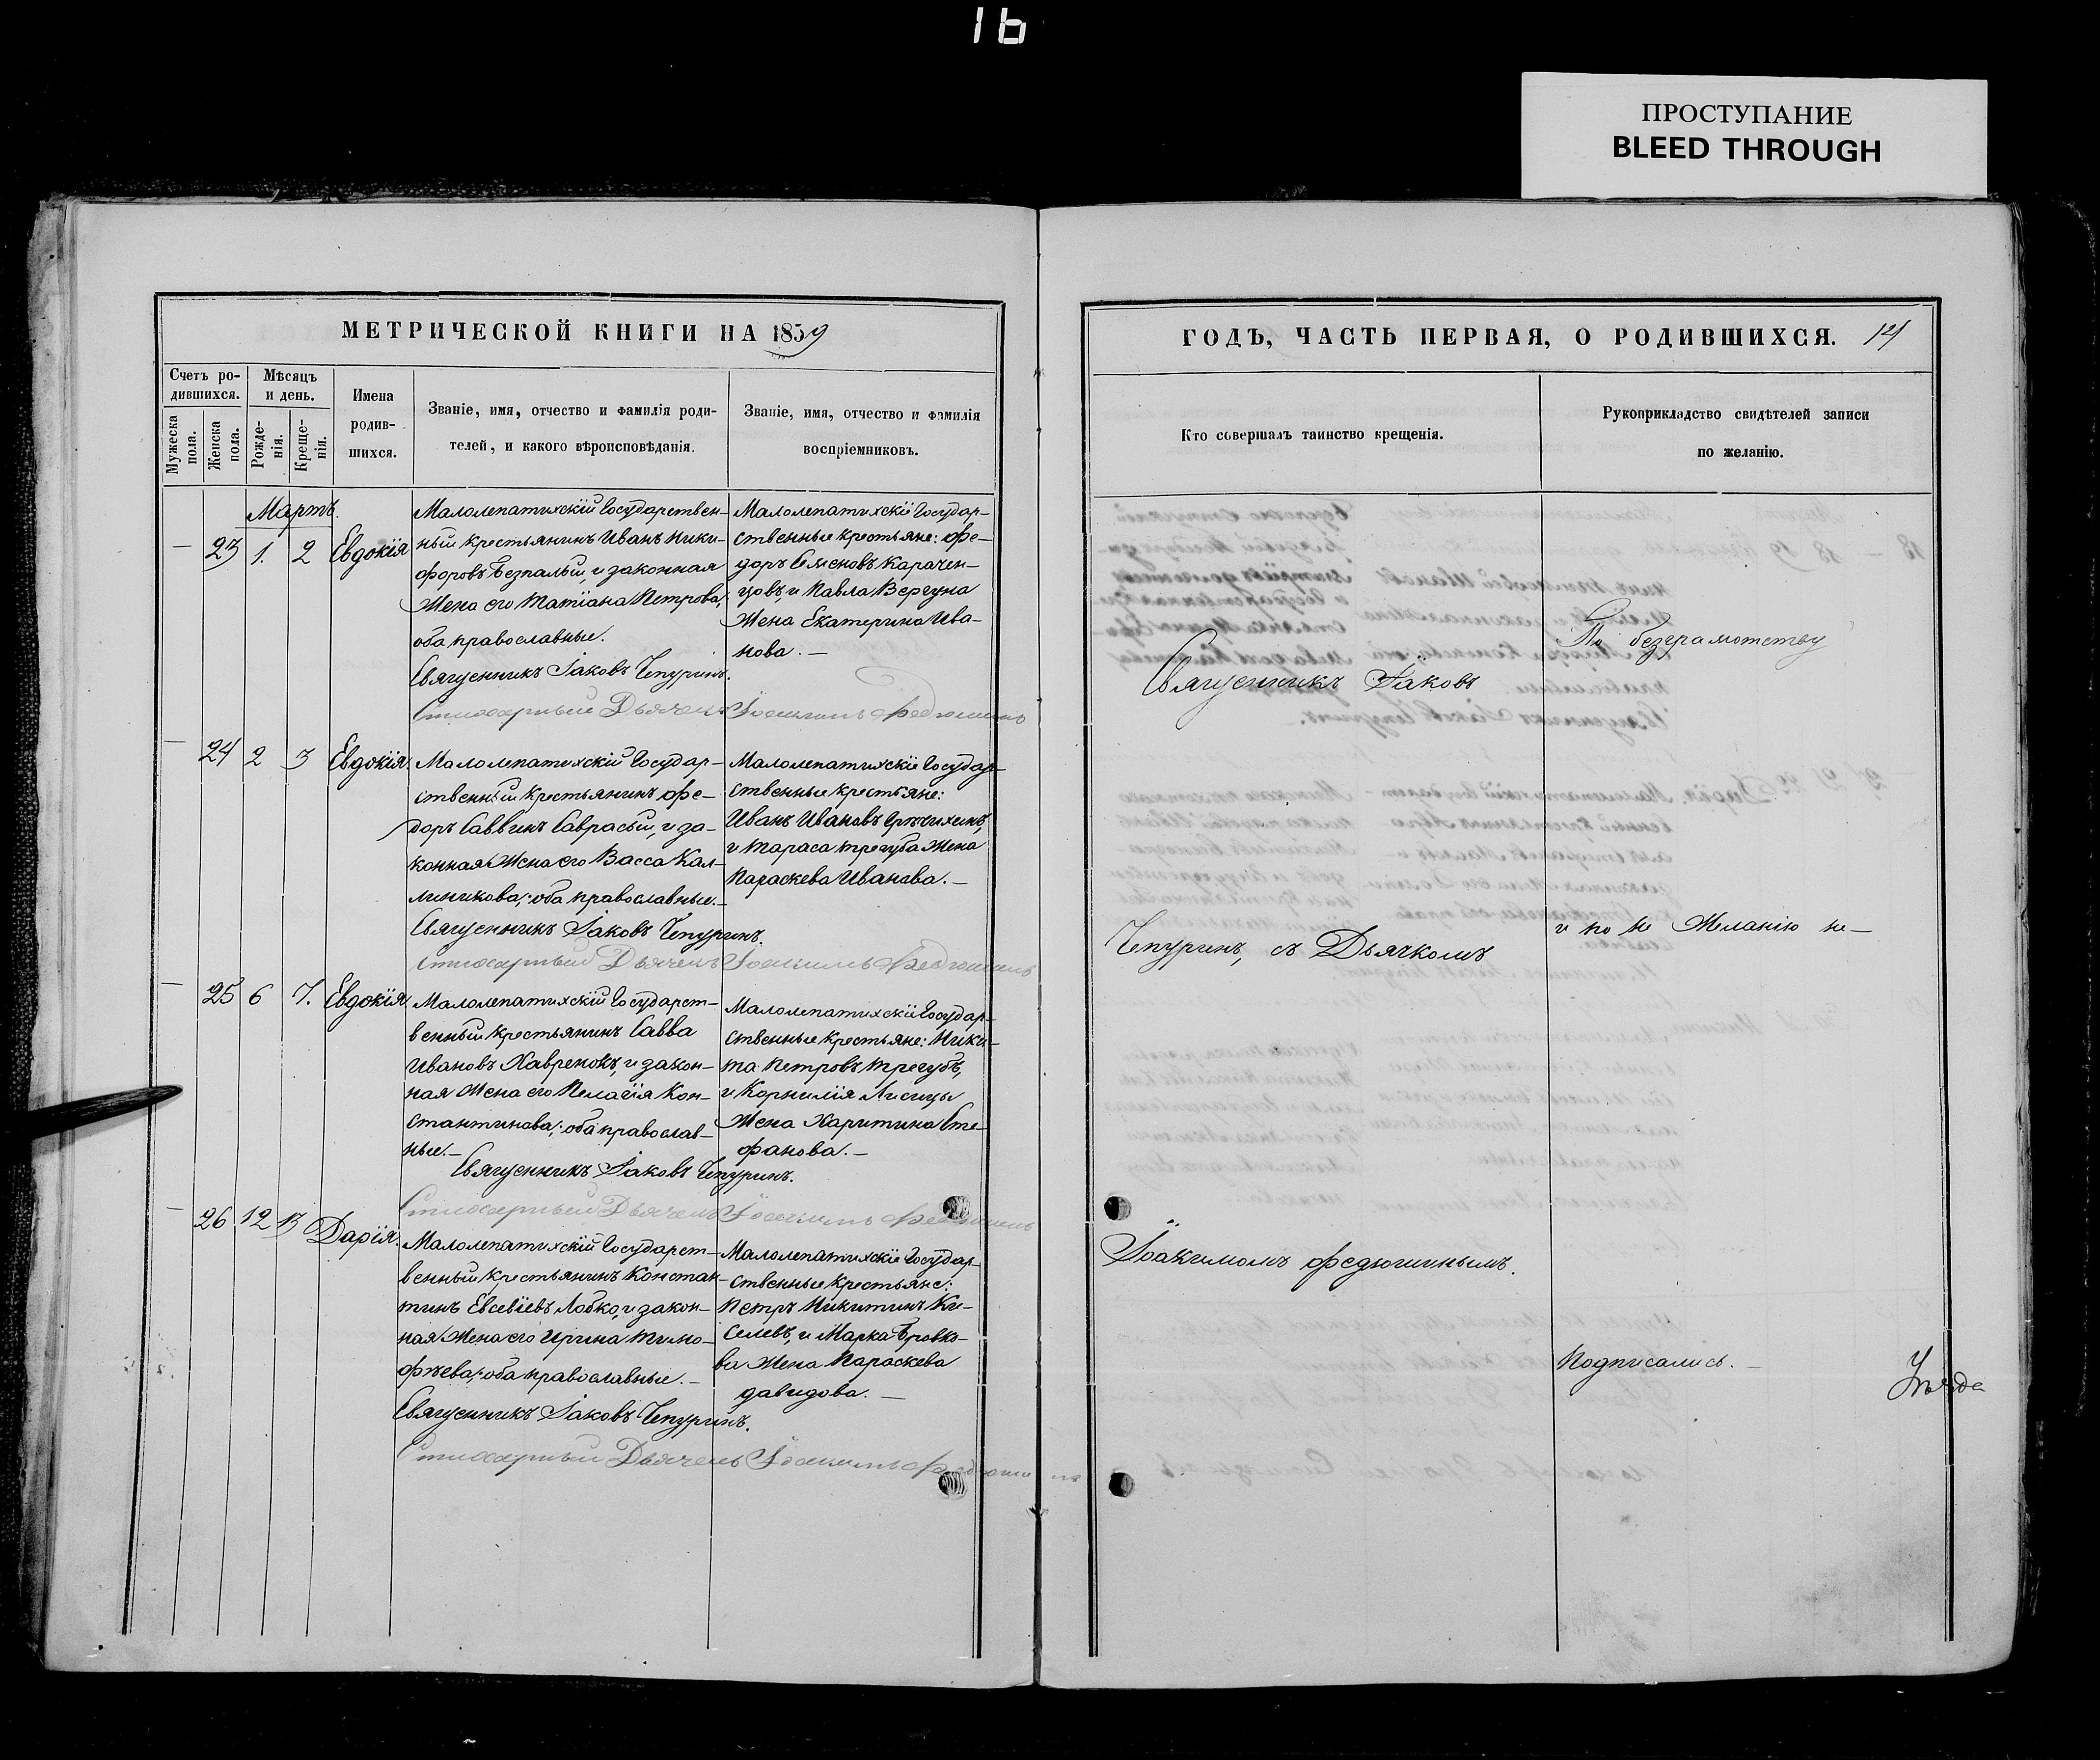 16
ПРОСТУПАНИЕ
BLEED THROUGH
МЕТРИЧЕСКОЙ КНИГИ НА 1859
Счетъ ро-
дившихся.
Мужеска
пола.
Женска
пола.
Мѣсяцъ
и день.
Рожде-
нія.
Креще-
нія.
Имена
родив-
шихся.
Званіе, имя, отчество и фамилія роди-
телей, и какого вѣроисповѣданія.
Званіе, имя, отчество и фамилія
воспріемниковъ.
Мартъ.
— 23 1. 2 Евдокія
Малолепатихскій Государствен-
ный крестьянинъ Иванъ Ники-
форовъ Безпалый, и законная
Жена его Татіана Петрова,
оба православные.
Священникъ Іаковъ Чепуринъ.
Стихарный Дьячекъ Іоакимъ Федюшинъ
Малолепатихскіе Государ-
ственные крестьяне: Фе-
доръ Семеновъ Карачен-
цовъ, и Павла Вергуна
Жена Екатерина Ива-
нова. —
— 24 2 3 Евдокія.
Малолепатихскій Государ-
ственный крестьянинъ Фе-
доръ Саввинъ Саврасый, и за-
конная Жена его Васса Кал-
линикова; оба православные. —
Священникъ Іаковъ Чепуринъ.
Стихарный Дьячекъ Іоакимъ Федюшинъ
Малолепатихскіе Государ-
ственные крестьяне:
Иванъ Ивановъ
и Тараса Трегуба Жена
Параскева Иванова. —
— 25 6 7. Евдокія
Малолепатихскій Государст-
венный крестьянинъ Савва
Ивановъ Хавренокъ, и закон-
ная Жена его Пелагія Кон-
стантинова; оба православ-
ные. —
Священникъ Іаковъ Чепуринъ.
Стихарный Дьячекъ Іоакимъ Федюшинъ
Малолепатихскіе Государ-
ственные крестьяне: Ники-
та Петровъ Трегубъ,
и Корнилія Лисицы
Жена Харитина Сте-
фанова. —
— 26 12 13 Дарія.
Малолепатихскій Государст-
венный крестьянинъ Констан-
тинъ Евсевіевъ Лобко, и закон-
ная Жена его Ирина Тимо-
фѣева; оба православные. —
Священникъ Іаковъ Чепуринъ.
Стихарный Дьячекъ Іоакимъ Федюшинъ
Малолепатихскіе Государ-
ственные крестьяне:
Петръ Никитинъ Ки-
селевъ, и Марка Бровко-
ва Жена Параскева
Давидова. —
ГОДЪ, ЧАСТЬ ПЕРВАЯ, О РОДИВШИХСЯ. 14
Кто совершалъ таинство крещенія.
Рукоприкладство свидѣтелей записи
по желанію.
Священникъ Іаковъ
Чепуринъ, съ Дьячкомъ
Іоакимомъ Федюшинымъ.
По безграмотству
и по не Желанію не—
подписались. —